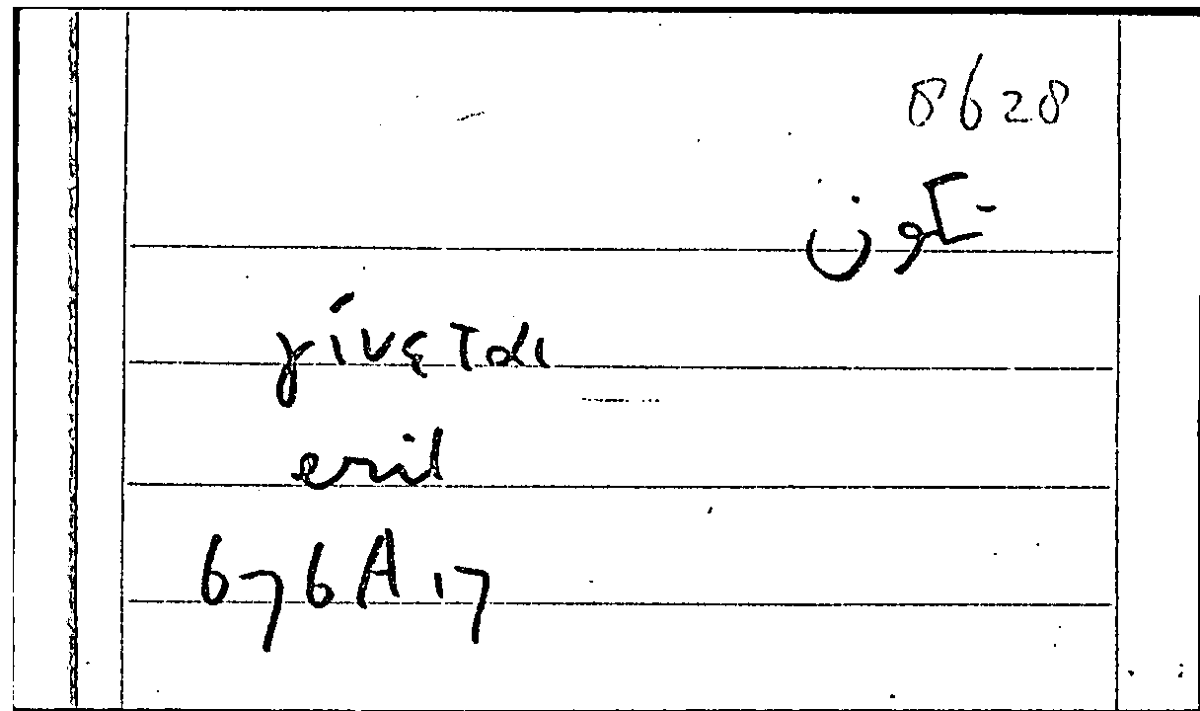 8628
تكون
γίνεται
erit
676A17